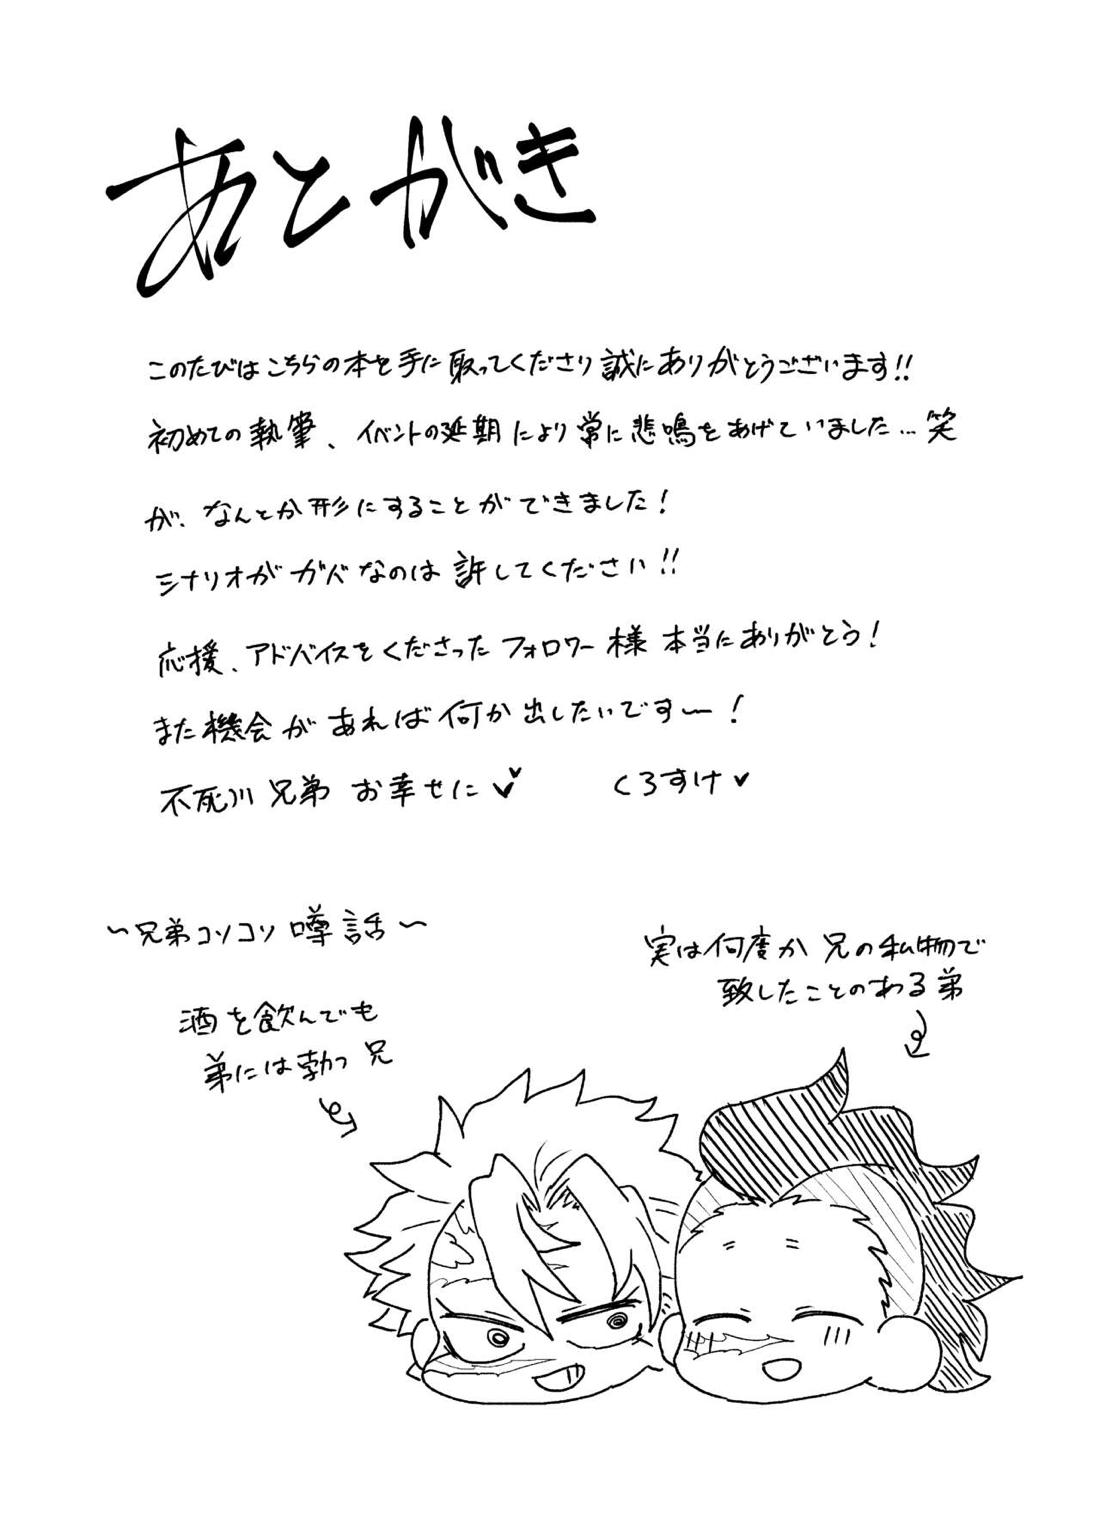 あとがき
このたびはこちらの本を手に取ってくださり誠にありがとうございます!!
初めての執筆、イベントの延期により常に悲鳴をあげていました…笑
が、なんとか形にすることができました!
シナリオがガバなのは許してください!!
応援、アドバイスをくださったフォロワー様本当にありがとう!
また機会があれば何か出したいです〜!
不死川兄弟お幸せに♥♥ くろすけ♥
〜兄弟コソコソ噂話〜
酒を飲んでも
弟には勃つ兄
実は何度か兄の私物で
致したことのある弟